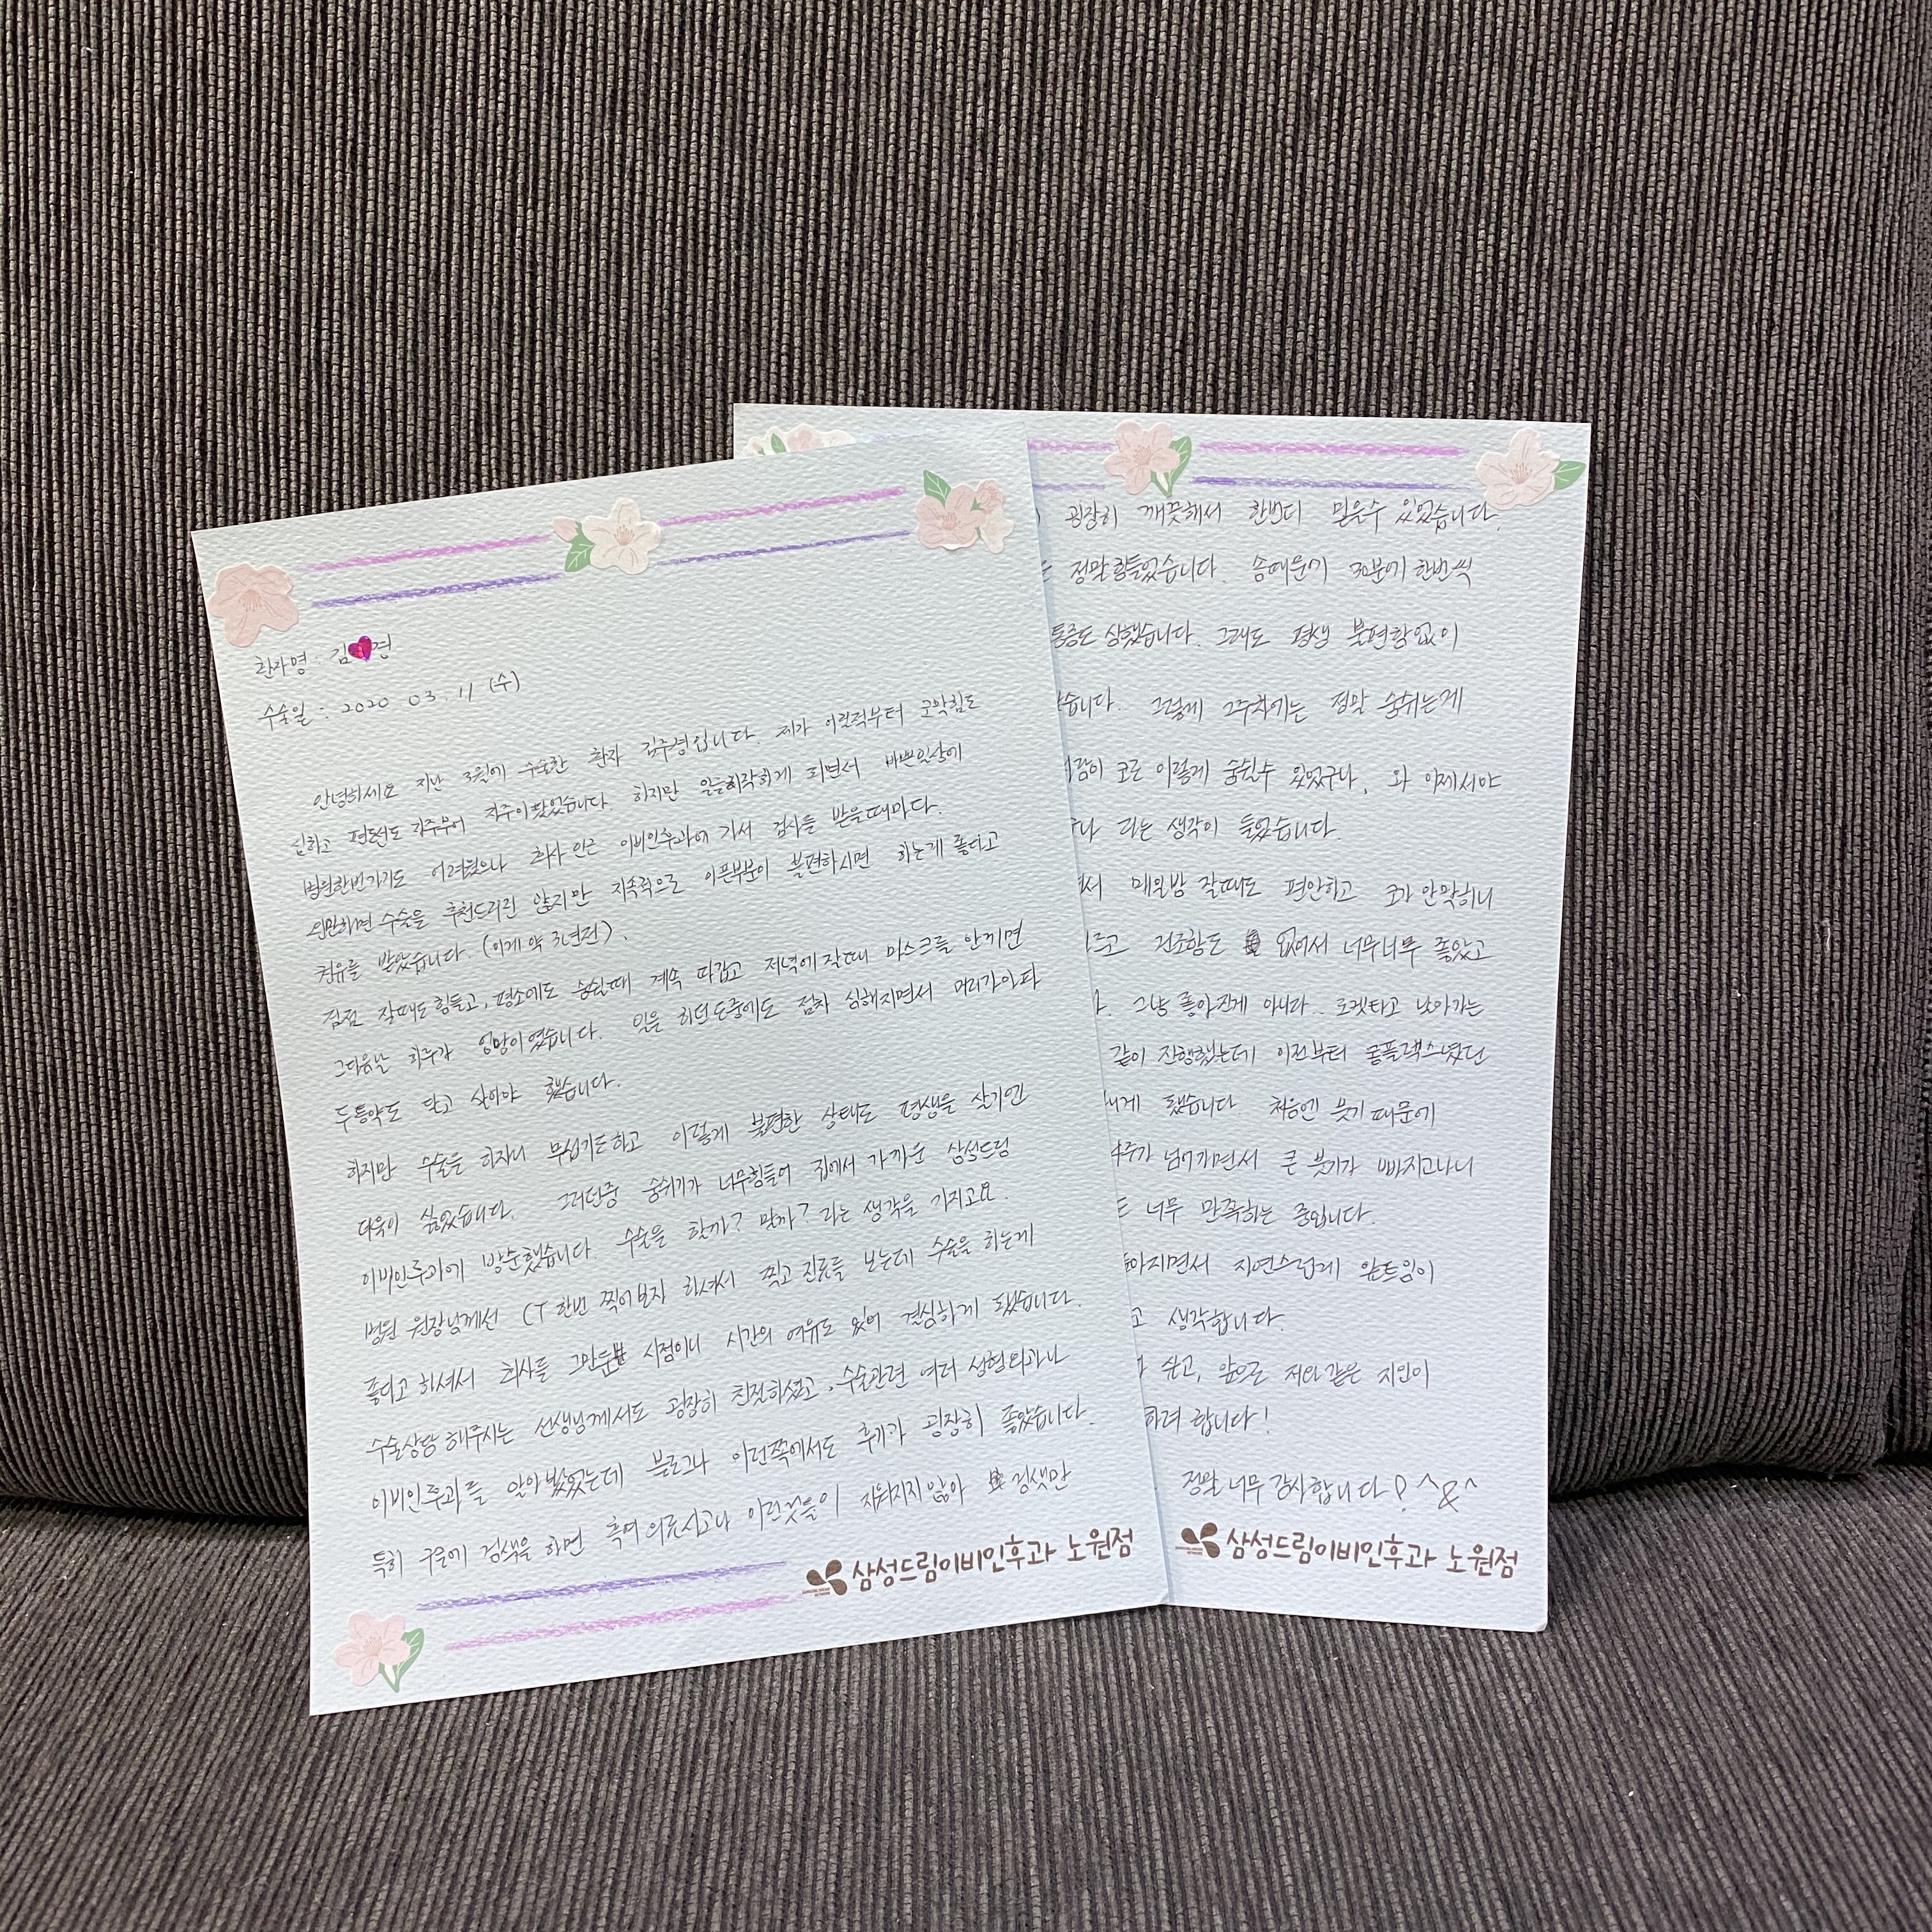 환자명 : 김 경
수술일 : 2020 03. 11 (수)
안녕하세요 지난 3월에 수술한 환자 김주경입니다. 제가 어릴적부터 코막힘도
심하고 편도선도 자주부어 자주아팠었습니다 하지만 일을시작하게 되면서 바쁜일상에
병원한번가기도 어려웠으나 회사 인근 이비인후과에 가서 검사를 받을때마다.
웬만하면 수술을 추천드리진 않지만 지속적으로 아픈부분이 불편하시면 하는게 좋다고
권유를 받았습니다 (이게 약 3년전).
점점 잘때도 힘들고, 평소에도 숨쉴때 계속 따갑고 저녁에 잘때 마스크를 안끼면
그다음날 하루가 엉망이였습니다. 일을 하던도중에도 점차 심해지면서 머리가아파
두통약도 달고 살아야 했습니다.
하지만 수술을 하자니 무섭기도하고 이렇게 불편한 상태로 평생을 살기엔
더욱이 싫었습니다. 그러던중 숨쉬기가 너무힘들어 집에서 가까운 삼성드림
이비인후과에 방문했습니다. 수술을 할까? 말까? 라는 생각을 가지고요.
병원 원장님께선 CT 한번 찍어보자 하셔서 찍고 진료를 보는데 수술을 하는게
좋다고 하셔서 회사를 그만둔 시점이니 시간의 여유도 있어 결심하게 됐습니다.
수술상담 해주시는 선생님께서도 굉장히 친절하셨고, 수술관련 여러 성형외과나
이비인후과를 알아봤었는데 블로그나 이런쪽에서도 후기가 굉장히 좋았습니다.
특히 구글에 검색을 하면 혹여 의료사고나 이런것들이 지워지지 않아 검색만
삼성드림이비인후과 노원점
굉장히 깨끗해서 한번더 믿을수 있었습니다.
정말힘들었습니다. 솜때문에 30분에 한번씩
통증도 심했습니다. 그래도 평생 불편함없이
습니다. 그렇게 2주차에는 정말 숨쉬는게
사람이 코로 이렇게 숨쉴수 있었구나, 와 이제서야
구나 라는 생각이 들었습니다.
해서 매일밤 잘때도 편안하고 코가 안막히니
건조함도 없어서 너무너무 좋았고
그냥 좋아진게 아니라.. 로켓타고 날아가는
같이 진행했는데 이전부터 콤플렉스였던
하게 됐습니다 처음엔 붓기 때문에
4주가 넘어가면서 큰 붓기가 빠지고나니
너무 만족하는 중입니다.
높아지면서 자연스럽게 앞트임이
고 생각합니다.
싶고, 앞으로 저와 같은 지인이
하려 합니다!
정말 너무 감사합니다! ^&^
삼성드림이비인후과 노원점